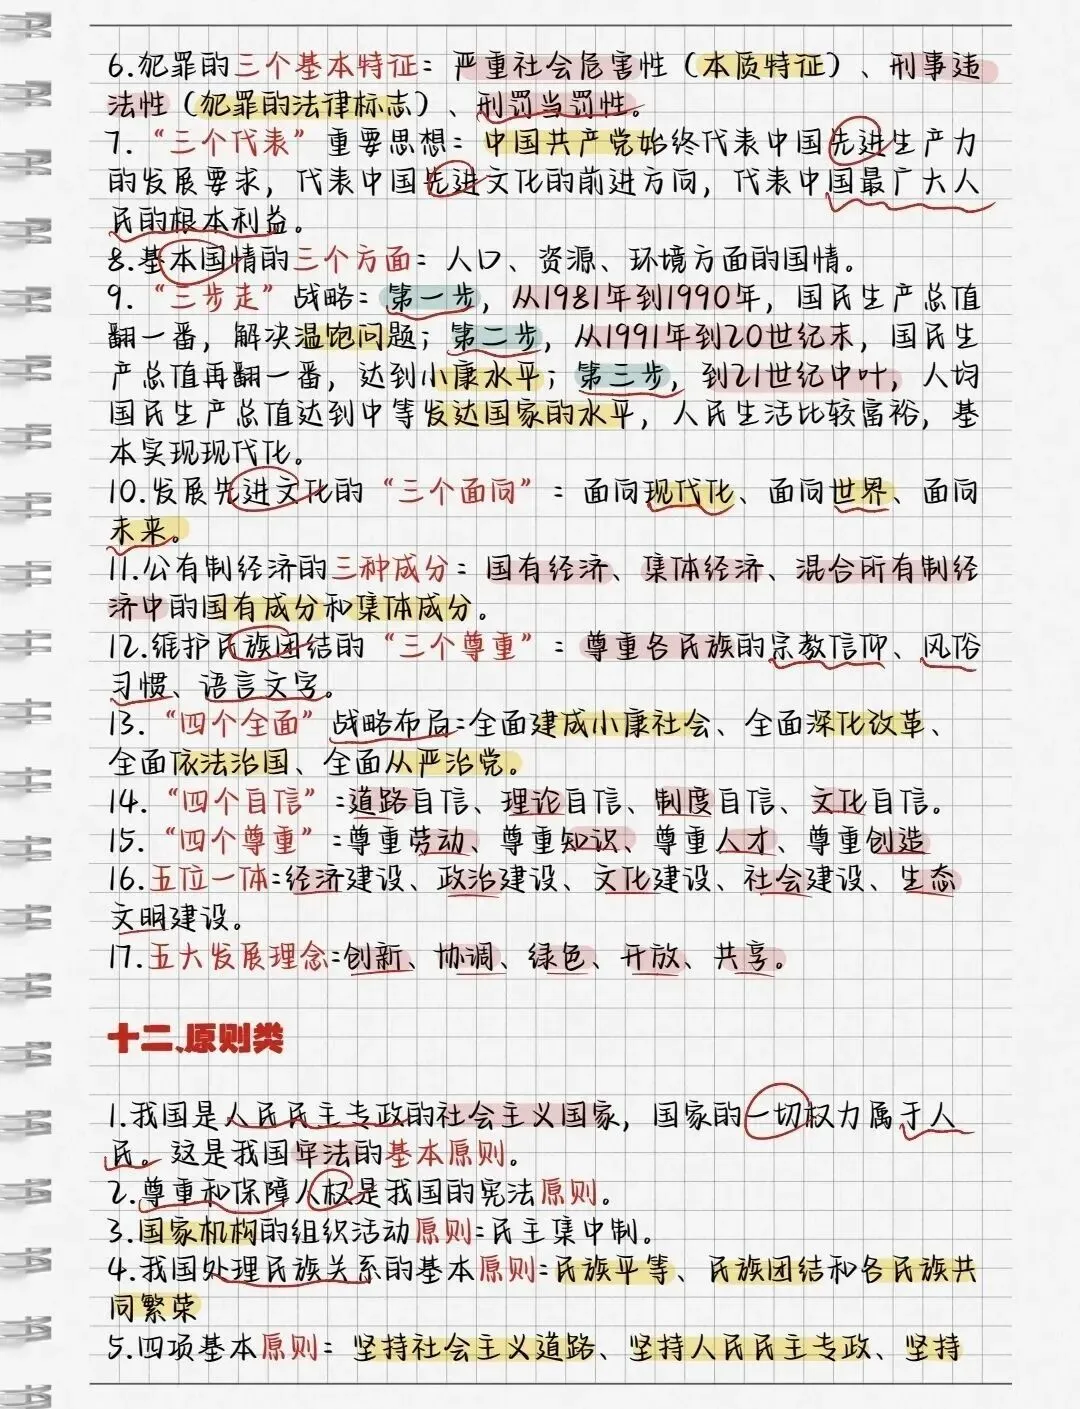 6.犯罪的三个基本特征：严重社会危害性（本质特征）、刑事违
法性（犯罪的法律标志）、刑罚当罚性。
7.“三个代表”重要思想：中国共产党始终代表中国先进生产力
的发展要求，代表中国先进文化的前进方向，代表中国最广大人
民的根本利益。
8.基本国情的三个方面：人口、资源、环境方面的国情。
9.“三步走”战略：第一步，从1981年到1990年，国民生产总值
翻一番，解决温饱问题；第二步，从1991年到20世纪末，国民生
产总值再翻一番，达到小康水平；第三步，到21世纪中叶，人均
国民生产总值达到中等发达国家的水平，人民生活比较富裕，基
本实现现代化。
10.发展先进文化的“三个面向”：面向现代化、面向世界、面向
未来。
11.公有制经济的三种成分：国有经济、集体经济、混合所有制经
济中的国有成分和集体成分。
12.维护民族团结的“三个尊重”：尊重各民族的宗教信仰、风俗
习惯、语言文字。
13.“四个全面”战略布局:全面建成小康社会、全面深化改革、
全面依法治国、全面从严治党。
14.“四个自信”:道路自信、理论自信、制度自信、文化自信。
15.“四个尊重”:尊重劳动、尊重知识、尊重人才、尊重创造
16.五位一体:经济建设、政治建设、文化建设、社会建设、生态
文明建设。
17.五大发展理念:创新、协调、绿色、开放、共享。
十二.原则类
1.我国是人民民主专政的社会主义国家，国家的一切权力属于人
民。这是我国宪法的基本原则。
2.尊重和保障人权是我国的宪法原则。
3.国家机构的组织活动原则:民主集中制。
4.我国处理民族关系的基本原则:民族平等、民族团结和各民族共
同繁荣
5.四项基本原则：坚持社会主义道路、坚持人民民主专政、坚持